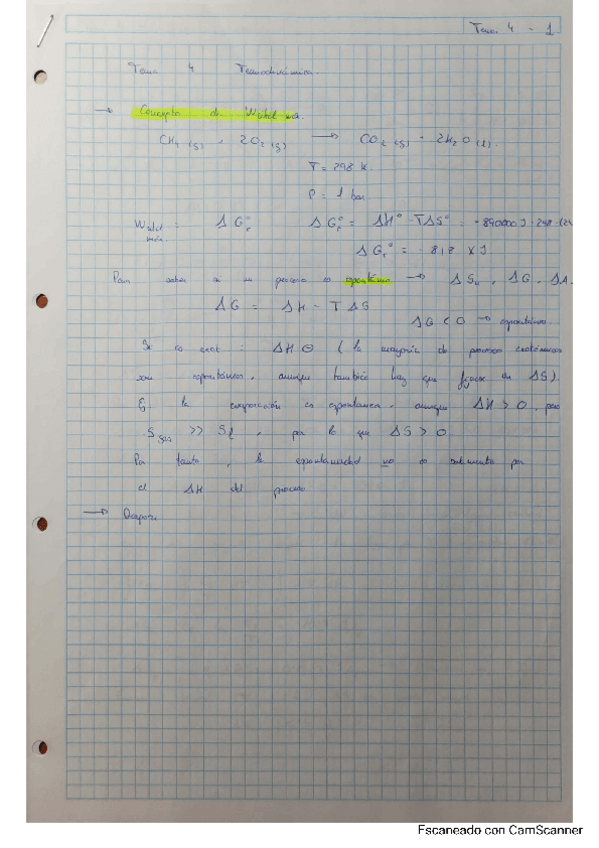 Tema 4 - 1
Tema 4 Termodinámica.
→ Concepto de W
CH4 (g) + 2O2 (g) → CO2 (g) + 2H2O (l).
T = 298 K.
P = 1 bar
W = ΔG° ΔG° = ΔH° - TΔS° = -890000 J - 298 · (
ΔG° = - 818 KJ.
Para saber si un proceso es espontáneo → ΔS, ΔG, ΔA.
ΔG = ΔH - TΔS
ΔG < 0 → espontáneo.
Si es exot : ΔH ⊖ ( la mayoría de procesos exotérmicos
son espontáneos, aunque también hay que fijarse en ΔS).
Ej. la evaporación es espontánea, aunque ΔH > 0, pero
Sgas >> Sl, por lo que ΔS > 0.
Por tanto, la espontaneidad no es por
el ΔH del proceso
→
Escaneado con CamScanner